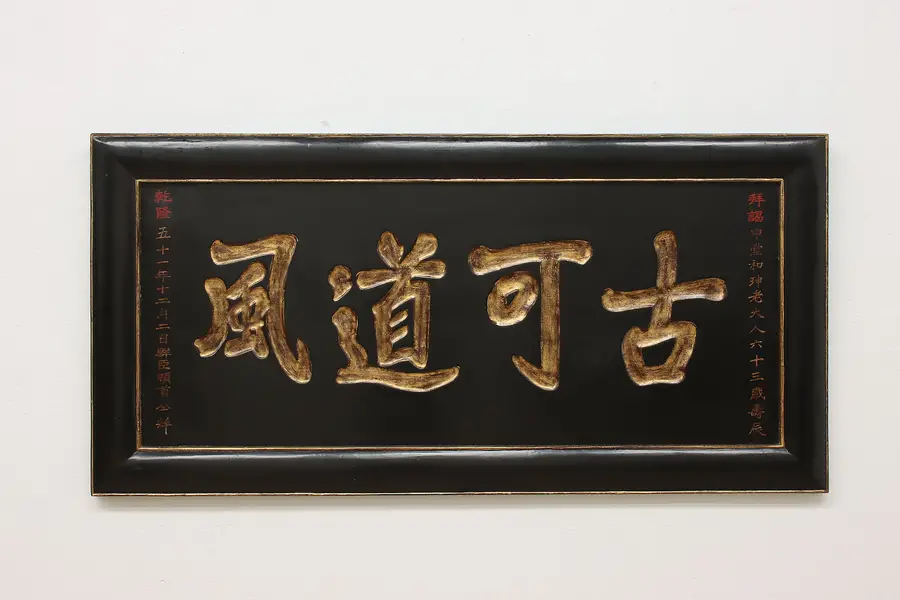 拜謁中堂和珅老大人六十三歲壽辰
古可道風
乾隆五十一年十二月二日臣頓首公祥